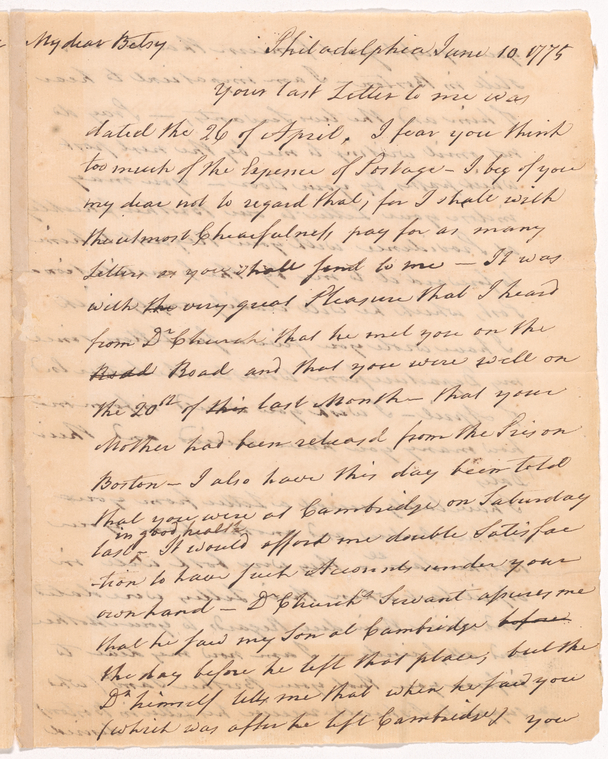 My dear Betsy Philadelphia June 10 1775
Your last Letter to me was
dated the 26 of April. I fear you think
too much of the Expence of Postage - I beg of you
my dear not to regard that, for I shall with
the utmost Chearfulness pay for as many
Letters as you shall send to me - It was
with the very great Pleasure that I heard
from Dr Church that he met you on the
Road Road and that you were well on
the 20th of this last Month - that your
Mother had been released from the Prison
Boston - I also have this day been told
that you were at Cambridge on Saturday
in good health
last - It would afford me double Satisfac
-tion to have such Accounts under your
own hand - Dr Churchs Servant assures me
that he saw my Son at Cambridge before
the day before he left that place; but the
Dr himself tells me that when he saw you
(which was after he left Cambridge) you